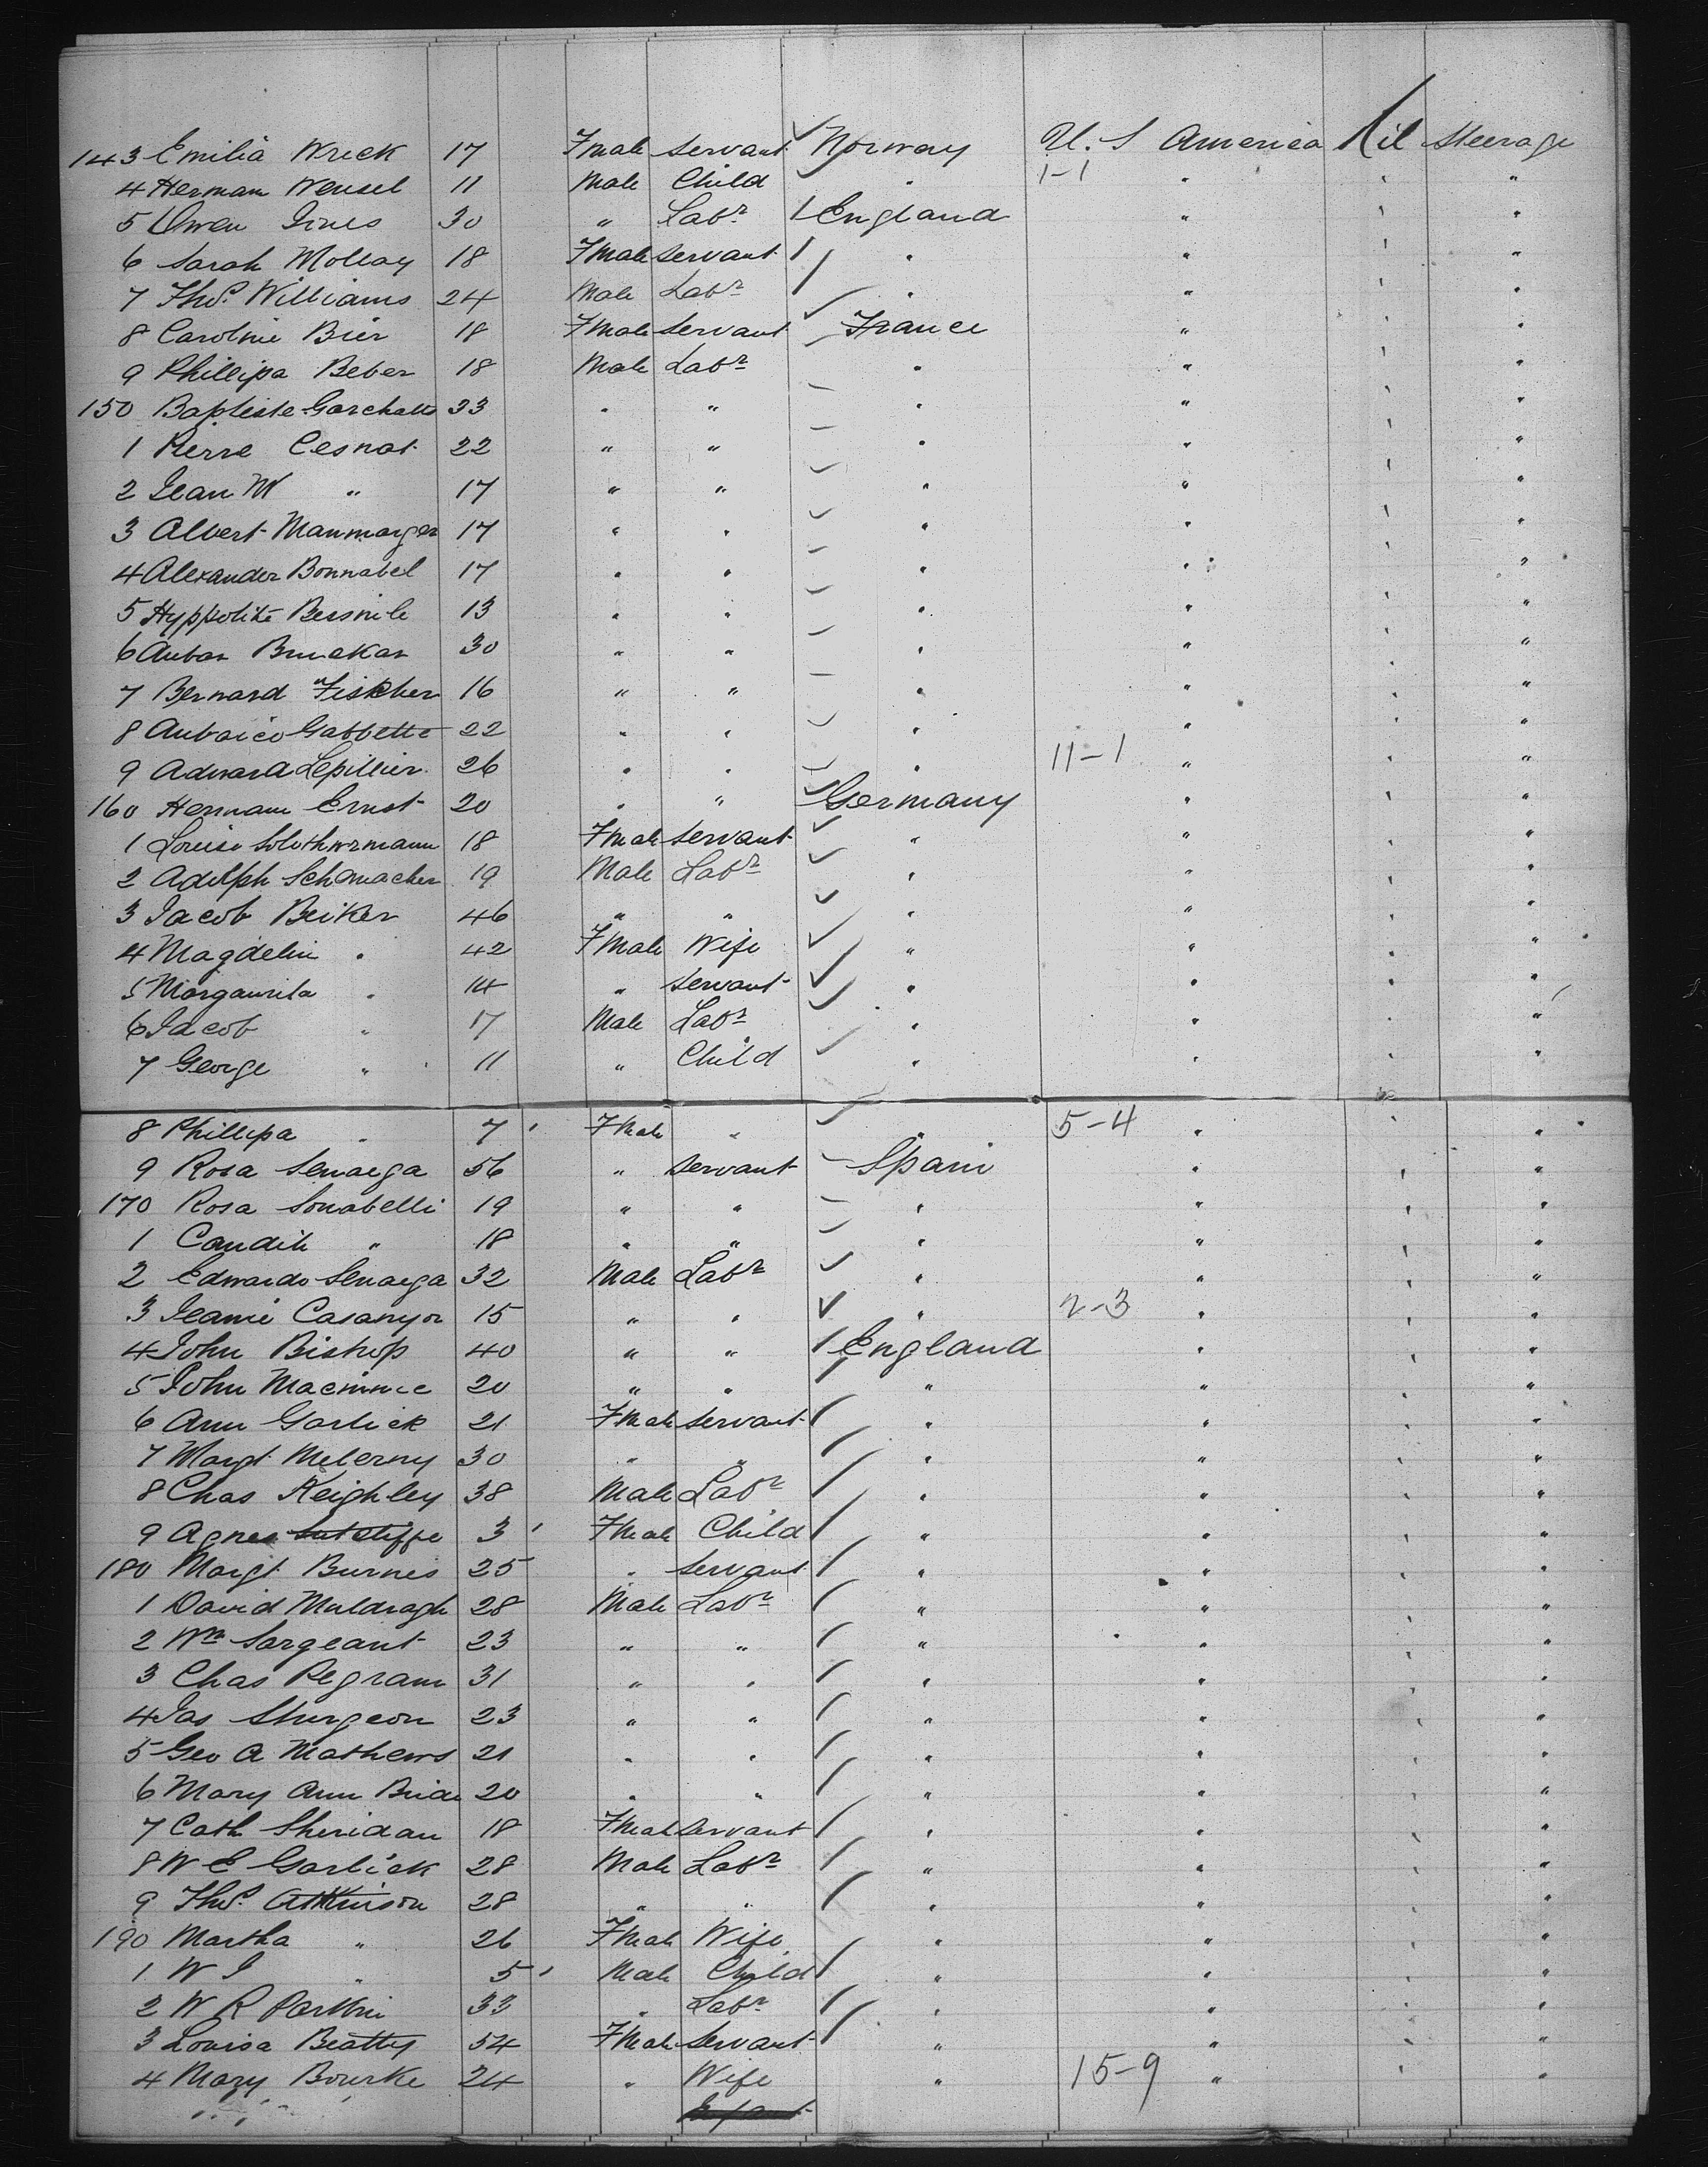 143 Emilia Wreck 17 Fmale Servant Norway U. S America Nil Steerage
4 Herman Wensel 11 Male Child " 1-1 " " "
5 Owen Jones 30 " Labr England " " "
6 Sarah Molloy 18 Fmale Servant " " " "
7 Thos. Williams 24 Male Labr " " " "
8 Caroline Bier 18 Fmale Servant France " " "
9 Phillipa Beber 18 Male Labr " " " "
150 Baptiste 33 " " " " " "
1 Pierre Cesnat 22 " " " " " "
2 Jean M " 17 " " " " " "
3 Albert 17 " " " " " "
4 Alexander Bonnabel 17 " " " " " "
5 Hyppolite 13 " " " " " "
6 30 " " " " " "
7 Bernard Fiskher 16 " " " " " "
8 Gabbette 22 " " " " " "
9 Lepillier 26 " " " 11-1 " " "
160 Hermann Ernst 20 " " Germany " " "
1 Louise 18 Fmale Servant " " " "
2 Adolph Schomacher 19 Male Labr " " " "
3 Jacob Beiker 46 " " " " " "
4 Magdelin " 42 Fmale Wife " " " "
5 " 14 " Servant " " " "
6 Jacob " 17 Male Labr " " " "
7 George " 11 " Child " " " "
8 Phillipa " 7 Fmale " " 5-4 " " "
9 Rosa Senaega 56 " Servant Spain " " "
170 Rosa Sonabelli 19 " " " " " "
1 Candih " 18 " " " " " "
2 Edwardo Senaega 32 Male Labr " " " "
3 Casanyor 15 " " " 2-3 " " "
4 John Bishop 40 " " England " " "
5 John 20 " " " " " "
6 Ann Garlick 21 Fmale Servant " " " "
7 Margt 30 " " " " " "
8 Chas Keighley 38 Male Labr " " " "
9 Agnes Sutcliffe 3 Fmale Child " " " "
180 Margt Burnes 25 " Servant " " " "
1 David Muldragh 28 Male Labr " " " "
2 Wm Sargeant 23 " " " " " "
3 Chas Pegram 31 " " " " " "
4 Jas Sturgeon 23 " " " " " "
5 Geo A Mathews 21 " " " " " "
6 Mary Ann 20 " " " " " "
7 Cath Sheridan 18 Fmale Servant " " " "
8 W E Garlick 28 Male Labr " " " "
9 Thos. Atkinson 28 " " " " " "
190 Martha " 26 Fmale Wife " " " "
1 W J " 5 Male Child " " " "
2 W R 33 " Labr " " " "
3 Louisa Beatty 54 Fmale Servant " " " "
4 Mary Bourke 24 " Wife " 15-9 " " "